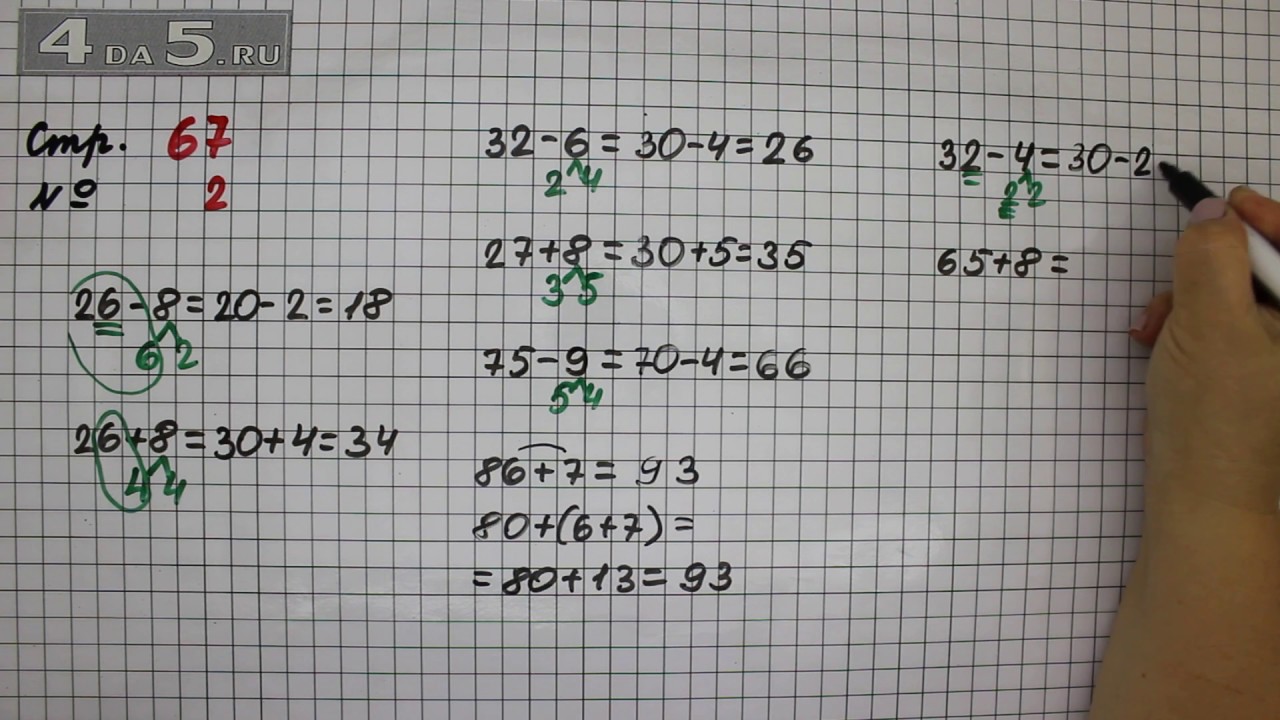 4DA5.RU
Стр. 67
№ 2
26-8=20-2=18
6 2
26+8=30+4=34
4 4
32-6=30-4=26
2 4
27+8=30+5=35
3 5
75-9=70-4=66
5 4
86+7=93
80+(6+7)=
=80+13=93
32-4=30-2
2 2
65+8=